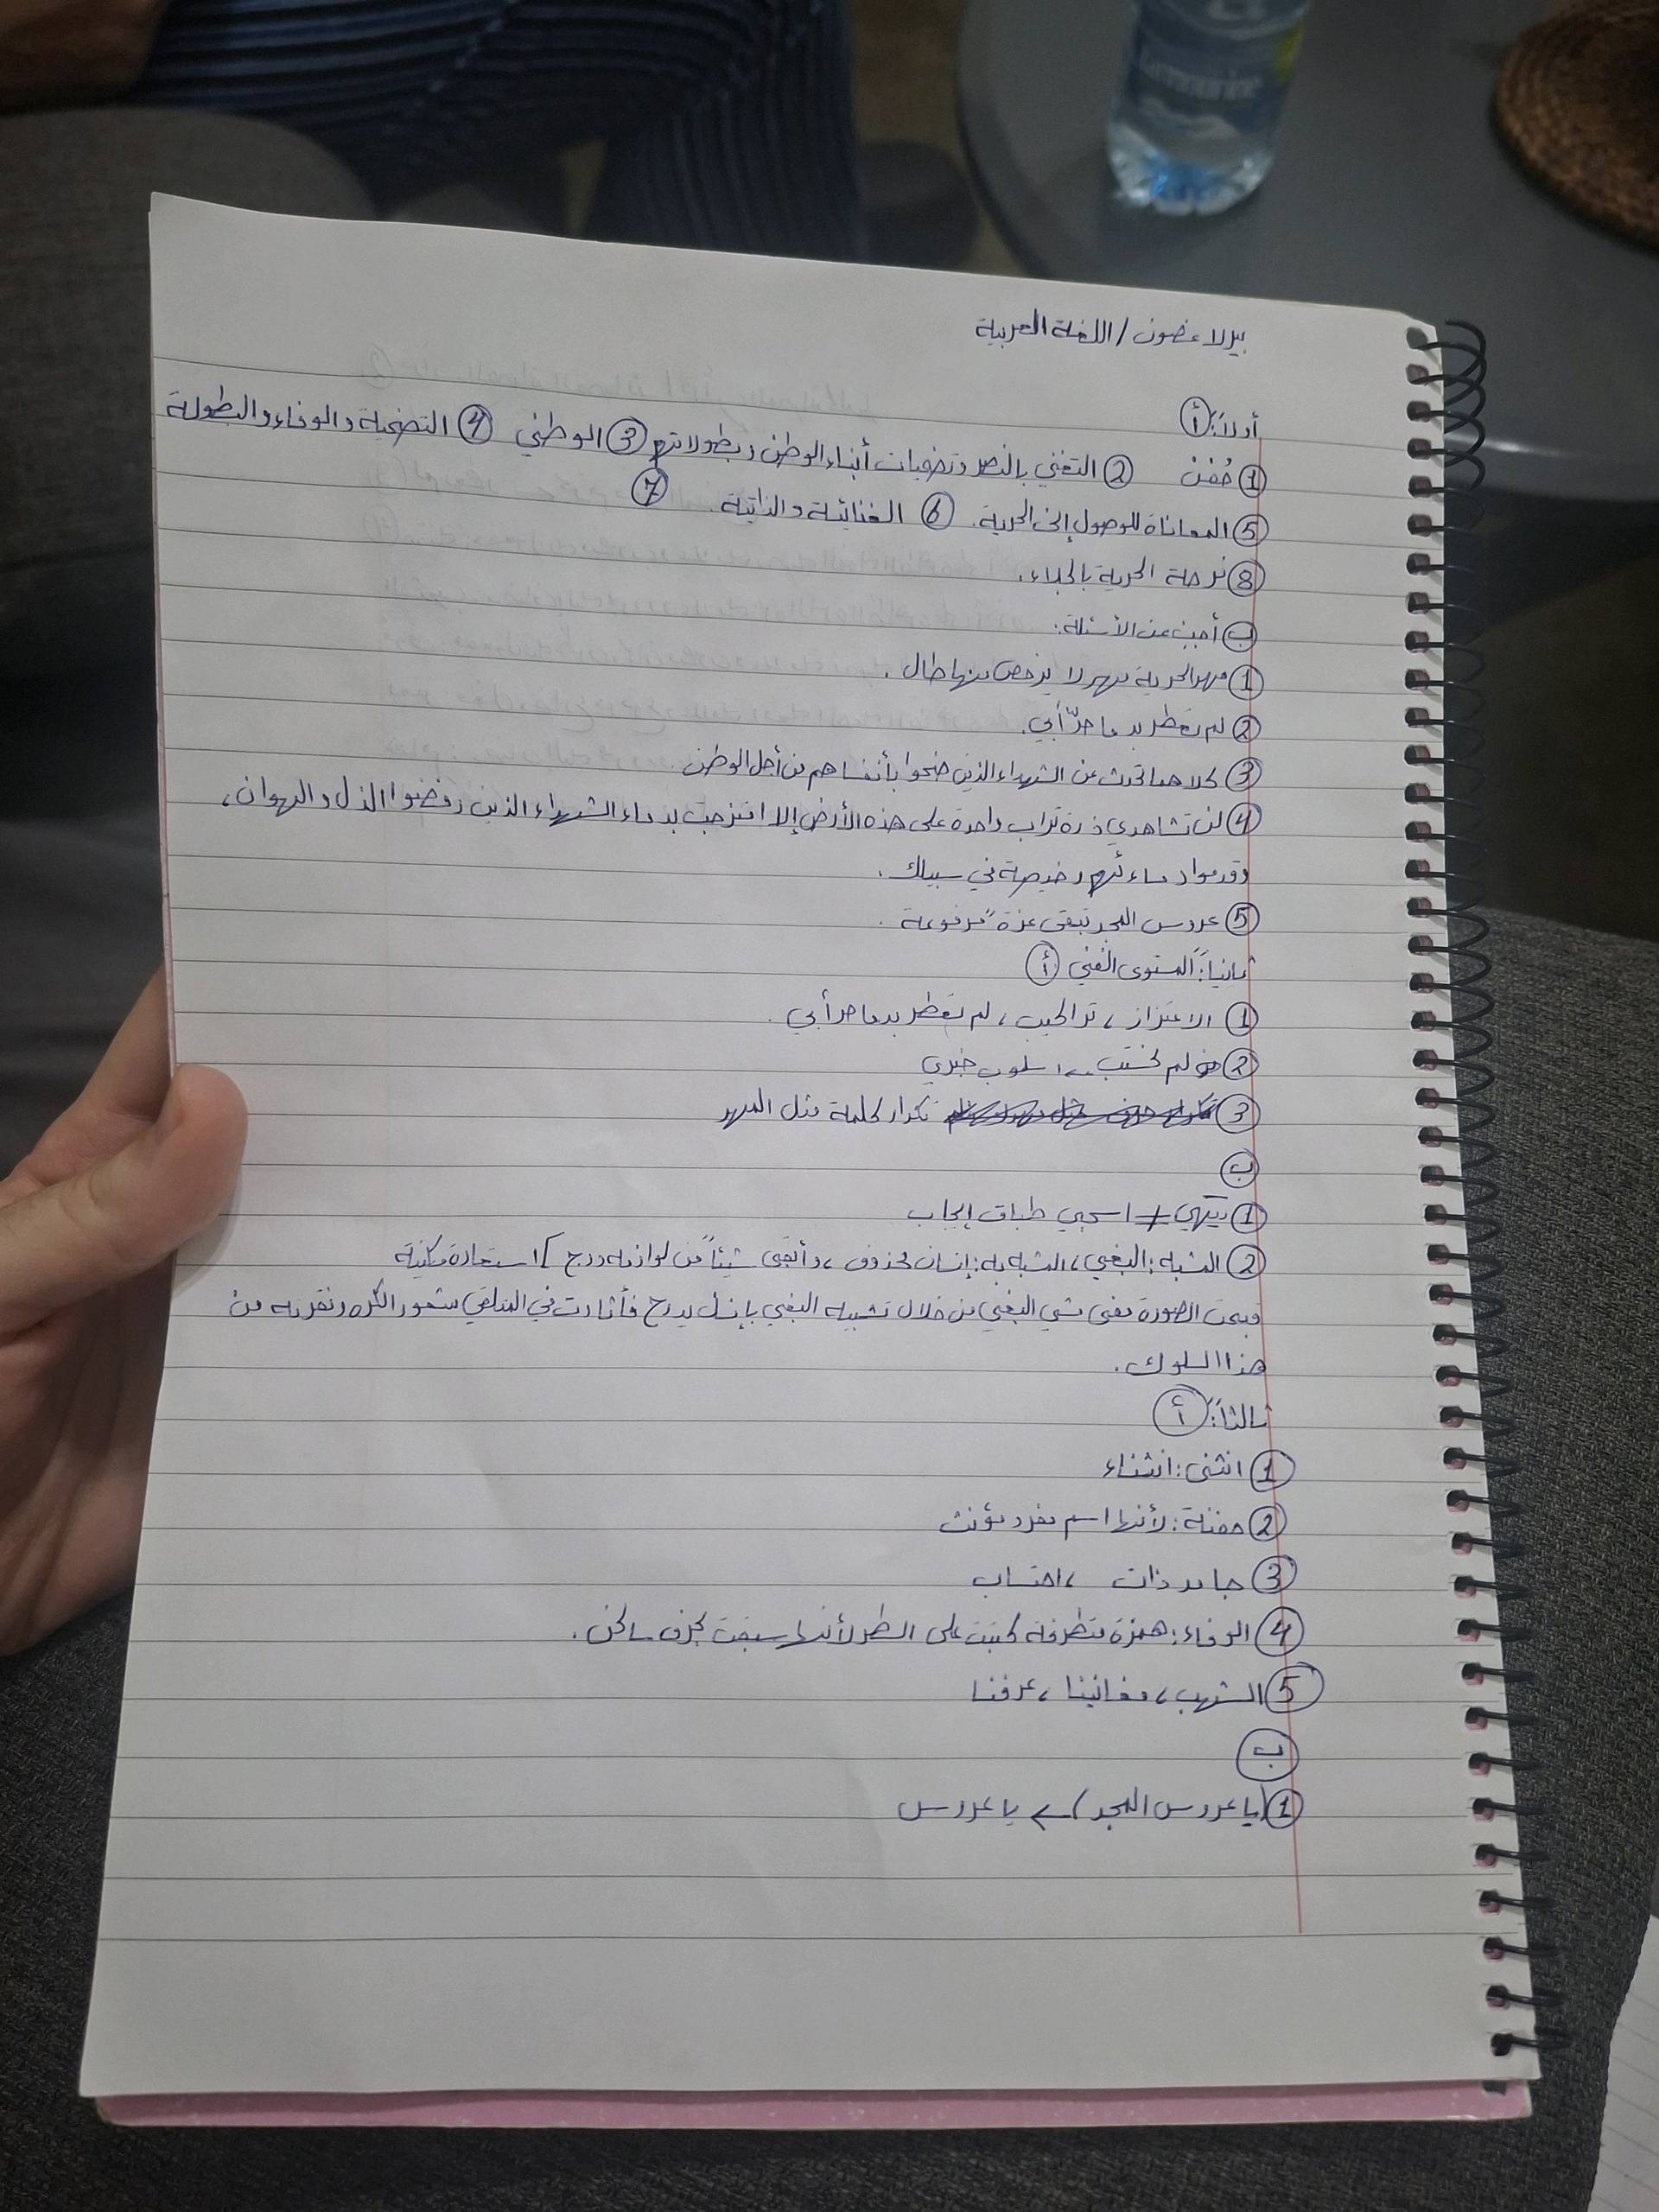 بيرلا غصون / اللغة العربية
أولاً: أ
1 حُفَن 2 التغني بالنصر وتضحيات أبناء الوطن وبطولاتهم 3 الوطني 4 التضحية والوفاء والبطولة
5 المعاناة للوصول إلى الحرية. 6 الغنائية والذاتية. 7
8 فرحة الحرية بالجلاء.
ب أجب عن الأسئلة:
1 مهر الحرية مهر لا يرخص مهما طال.
2 لم تعطر بدما حرّ أبي.
3 كلاهما تحدث عن الشهداء الذين ضحوا بأنفسهم من أجل الوطن.
4 لن تشاهدي ذرة تراب واحدة على هذه الأرض إلا امتزجت بدماء الشهداء الذين رفضوا الذل والهوان،
وقدموا دماءهم رخيصة في سبيلك.
5 عروس المجد تبقى عزة مرفوعة.
ثانياً: المستوى الفني أ
1 الاعتزاز، تراكيب، لم تعطر بدما حر أبي.
2 لم نحتسب.. اسلوب خبري
3 تكرار كلمة مثل المهر
ب
1 تيهي ≠ اسحبي طباق إيجاب
2 المشبه: البغي، المشبه به: إنسان محذوف، وأبقى شيئاً من لوازمه درج ] استعارة مكنية
قبحت الصورة معنى مشي البغي من خلال تشبيه البغي بإنسان يدرج فأثارت في المتلقي شعور الكره ونفرته من
هذا السلوك.
ثالثاً: أ
1 انثنى: انثناء
2 حفنة: لأنها اسم مفرد مؤنث
3 جامد ذات، احتساب
4 الوفاء: همزة متطرفة كتبت على السطر لأنها سبقت بحرف ساكن.
5 الشهب، مغانينا، عرفنا
ب
1 (يا عروس المجد) ← يا عروس